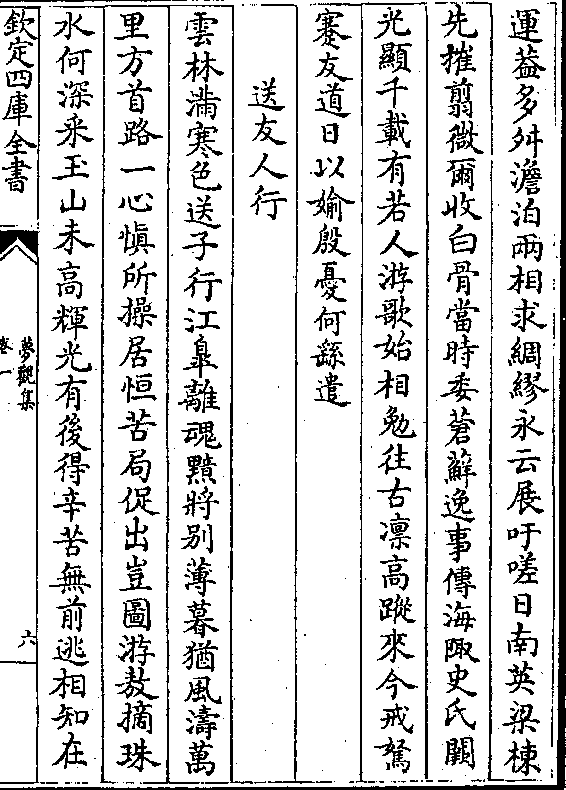 運葢多舛澹泊兩相求綢繆永云展吁嗟日南英梁棟
先摧翦微爾收白骨當時委蒼蘚逸事傳海陬史氏闕
光顯千載有若人游歌始相勉往古凛高蹤來今戒駑
蹇友道日以婾殷憂何繇遣
送友人行
雲林滿寒色送子行江臯離魂黯將别薄暮猶風濤萬
里方首路一心愼所操居恒苦局促出豈圖游敖摘珠
水何深采玉山未高輝光有後得辛苦無前逃相知在
欽定四庫全書
夢觀集
卷一
六